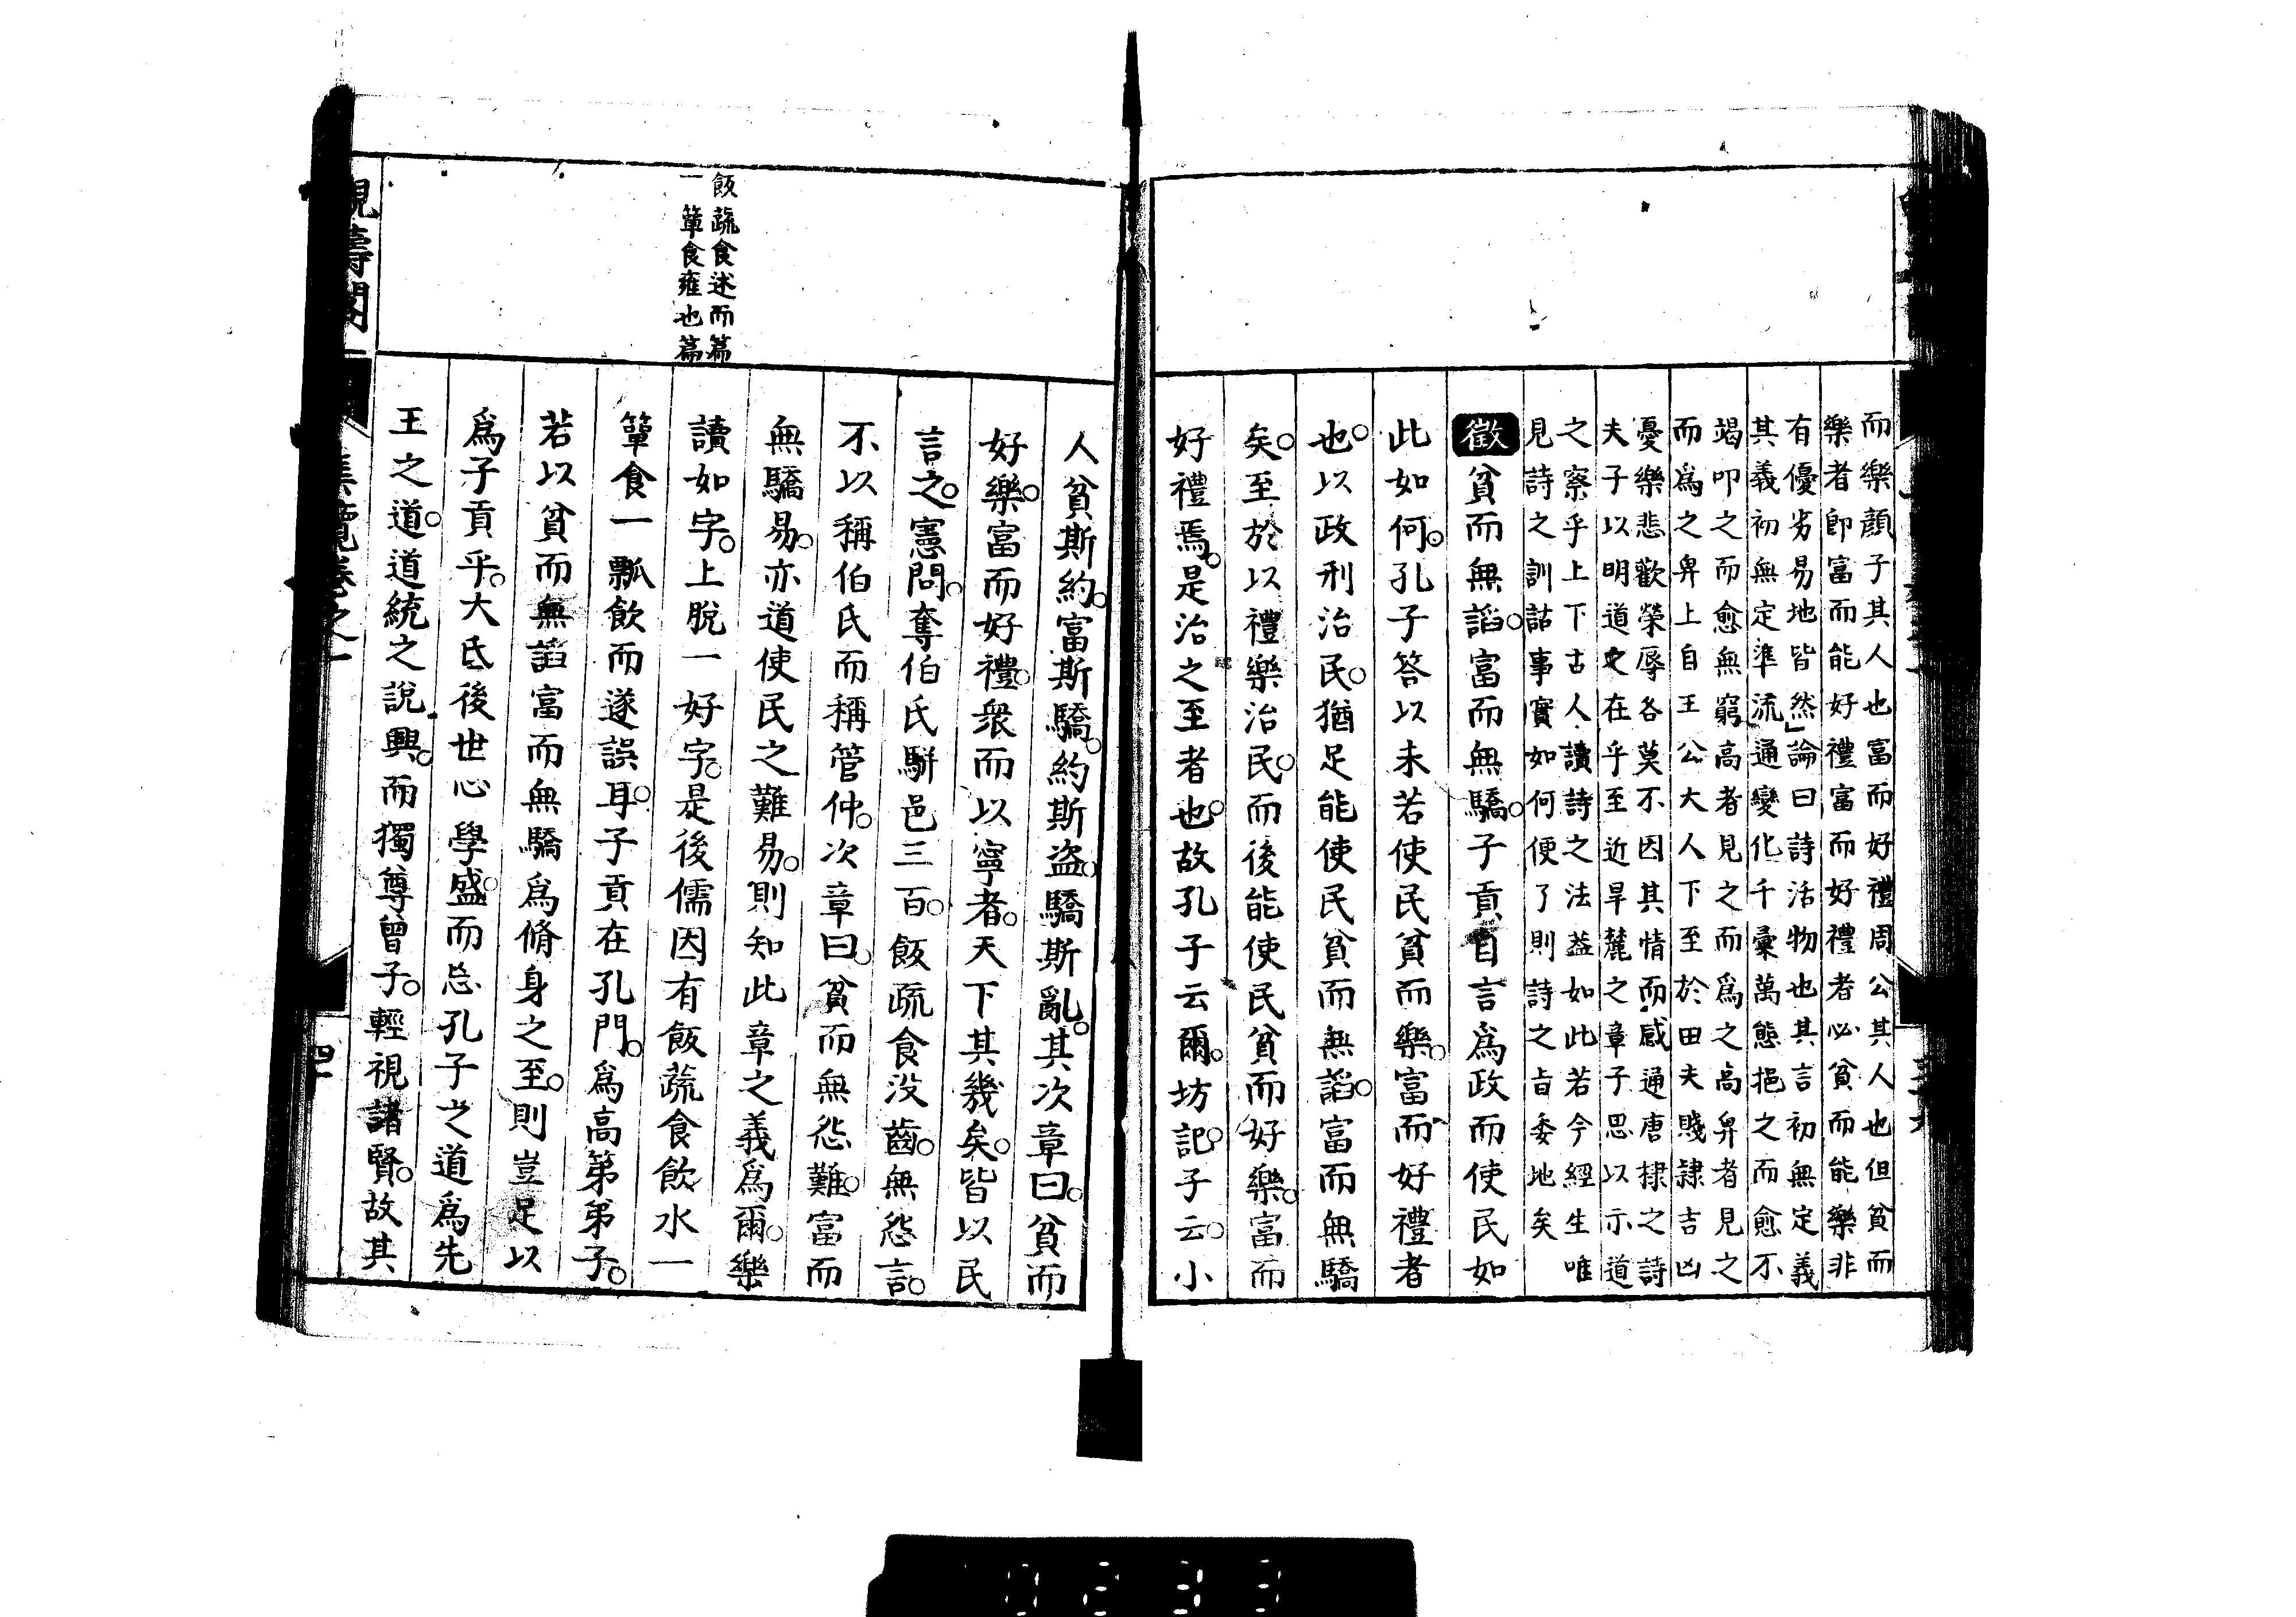 而樂顏子其人也富而好禮周公其人也但貧而
樂者卽富而能好禮富而好禮者必貧而能樂非
有優劣易地皆然」論曰詩活物也其言初無定義
其義初無定準流通變化千彙萬態挹之而愈不
竭叩之而愈無窮高者見之而爲之高卑者見之
而爲之卑上自王公大人下至於田夫賤隷吉凶
憂樂悲歡榮辱各莫不因其情而感通唐棣之詩
夫子以明道之在乎至近旱麓之章子思以示道
之察乎上下古人讀詩之法盖如此若今經生唯
見詩之訓詁事實如何便了則詩之旨委地矣
徵貧而無諂。富而無驕。子貢自言爲政而使民如
此如何。孔子答以未若使民貧而樂。富而好禮者
也。以政刑治民。猶足能使民貧而無諂。富而無驕
矣。至於以禮樂治民。而後能使民貧而好樂。富而
好禮焉。是治之至者也。故孔子云爾。坊記。子云。小
飯蔬食述而篇
一簞食雍也篇
人貧斯約。富斯驕。約斯盜。驕斯亂。其次章曰。貧而
好樂。富而好禮。衆而以寧者。天下其幾矣。皆以民
言之。憲問。奪伯氏駢邑三百。飯疏食没齒。無怨言。
不以稱伯氏而稱管仲。次章曰。貧而無怨難。富而
無驕易。亦道使民之難易。則知此章之義爲爾。樂
讀如字。上脱一好字。是後儒因有飯蔬食飲水一
簞食一瓢飲而遂誤耳。子貢在孔門。爲高第弟子。
若以貧而無諂富而無驕爲脩身之至。則豈足以
爲子貢乎。大氐後世心學盛。而忘孔子之道爲先
王之道。道統之說興。而獨尊曾子。輕視諸賢。故其